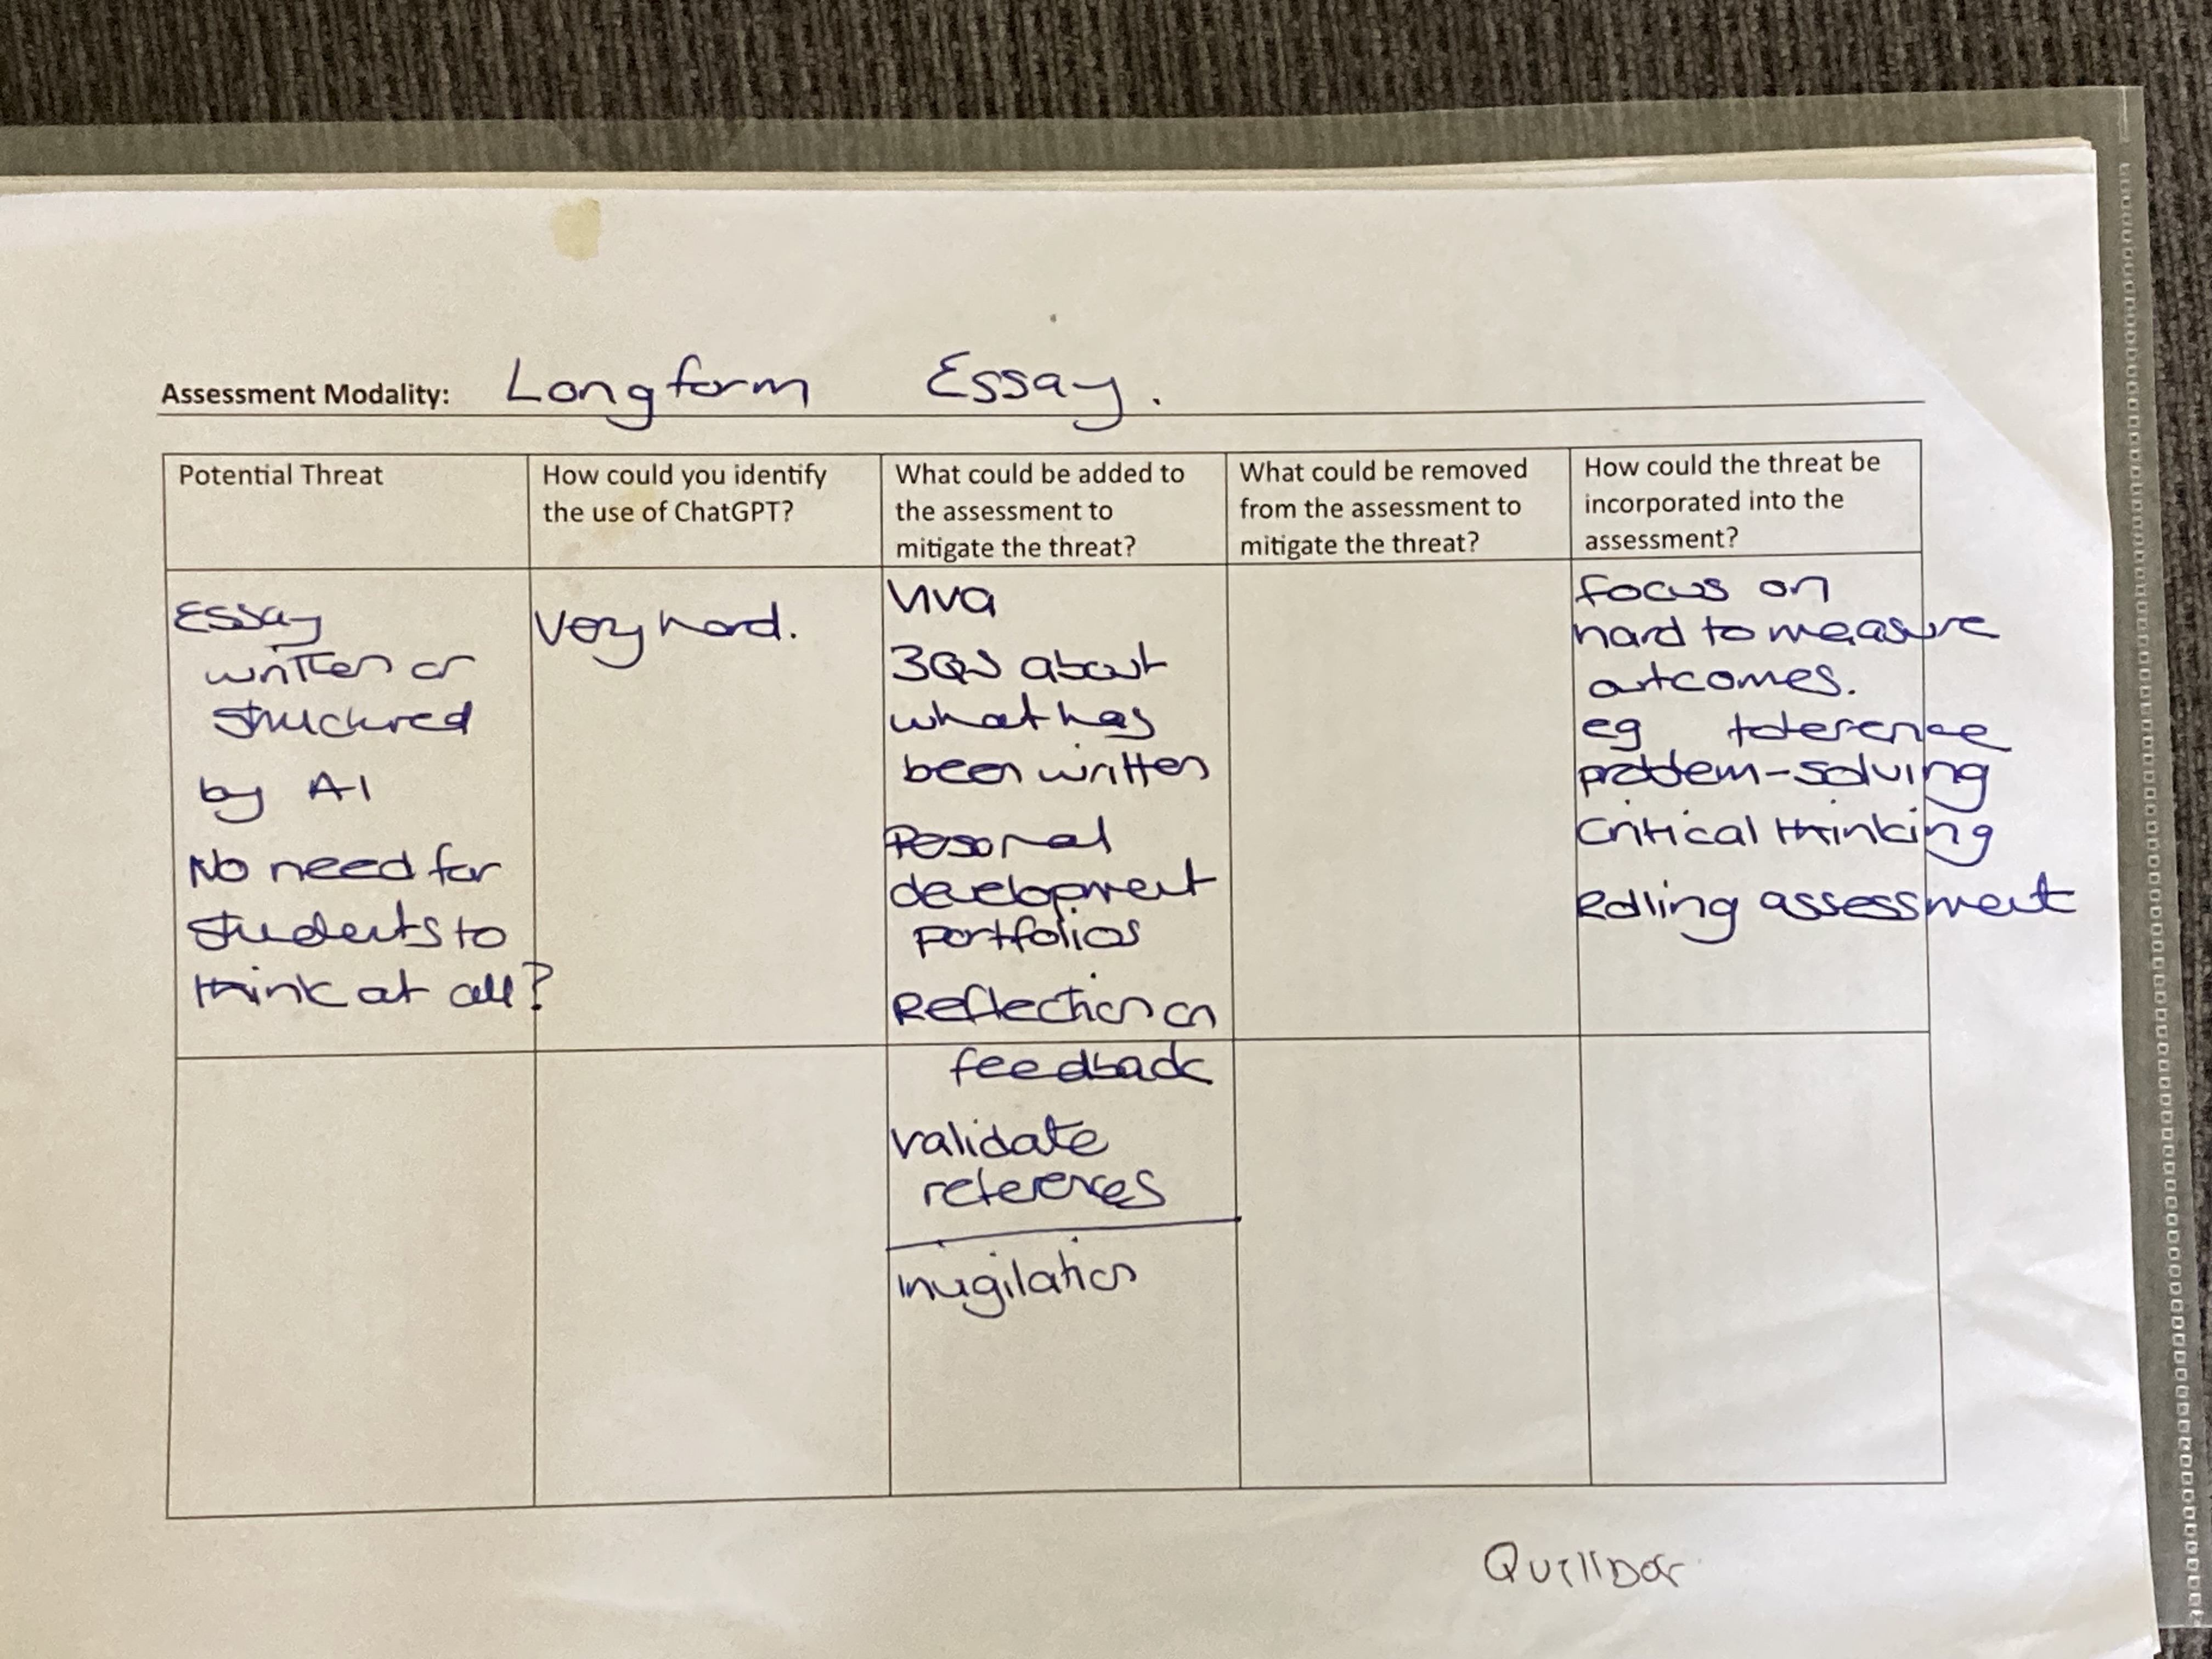 Assessment Modality: Longform Essay.
Potential Threat
How could you identify
the use of ChatGPT?
What could be added to
the assessment to
mitigate the threat?
What could be removed
from the assessment to
mitigate the threat?
How could the threat be
incorporated into the
assessment?
Essay
written or
structured
by AI
No need for
students to
think at all?
Very hard.
Viva
3QS about
what has
been written
Personal
development
portfolios
Reflection on
feedback
validate
references
invigilation
focus on
hard to measure
outcomes.
eg tolerence
problem-solving
Critical thinking
Rolling assessment